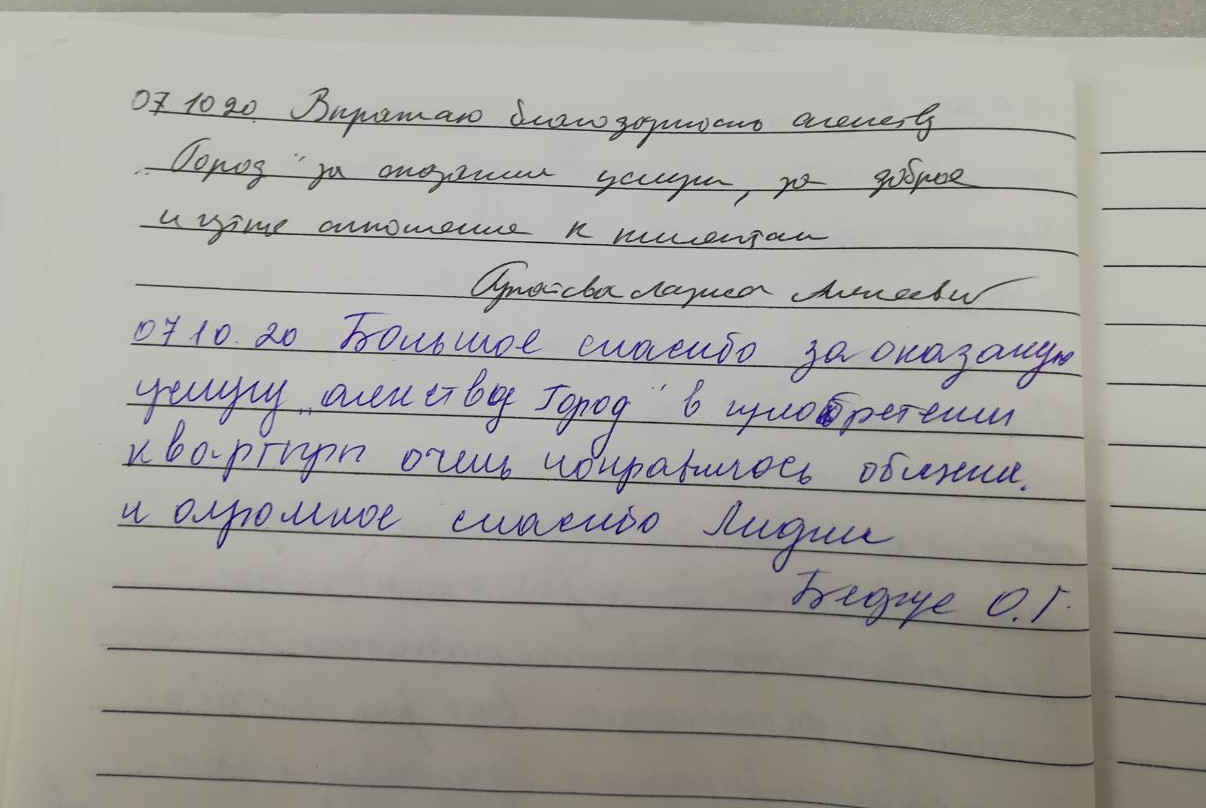 07 10 20. Выражаю благодарность агенству
"Город" за оказании услуги, за доброе
и чуткое отношение к клиентам
Лариса Алексеевна
07 10. 20 Большое спасибо за оказаную
услугу "агенства Город" в приобретении
квартиры очень понравилось обслужив.
и огромное спасибо Лидии
О.Г.